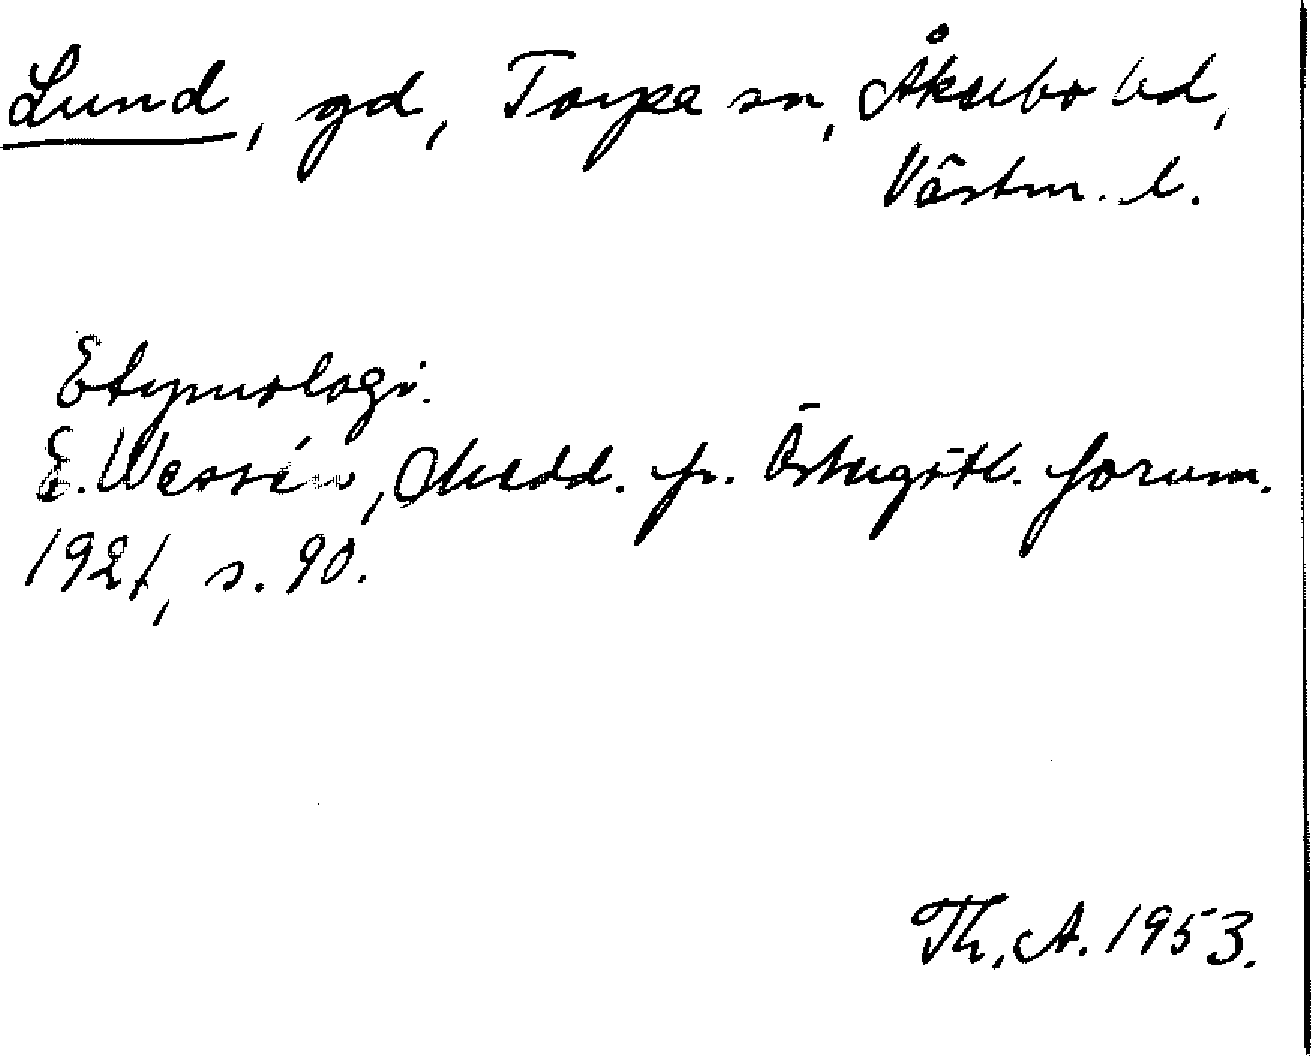 Lund, gd, Torpa sn, Åkerbo hd,
Västm. l.
Etymologi.
E. Wessén, Medd. fr. Östergötl. fornm.
1921, s. 90.
Th. A. 1953.